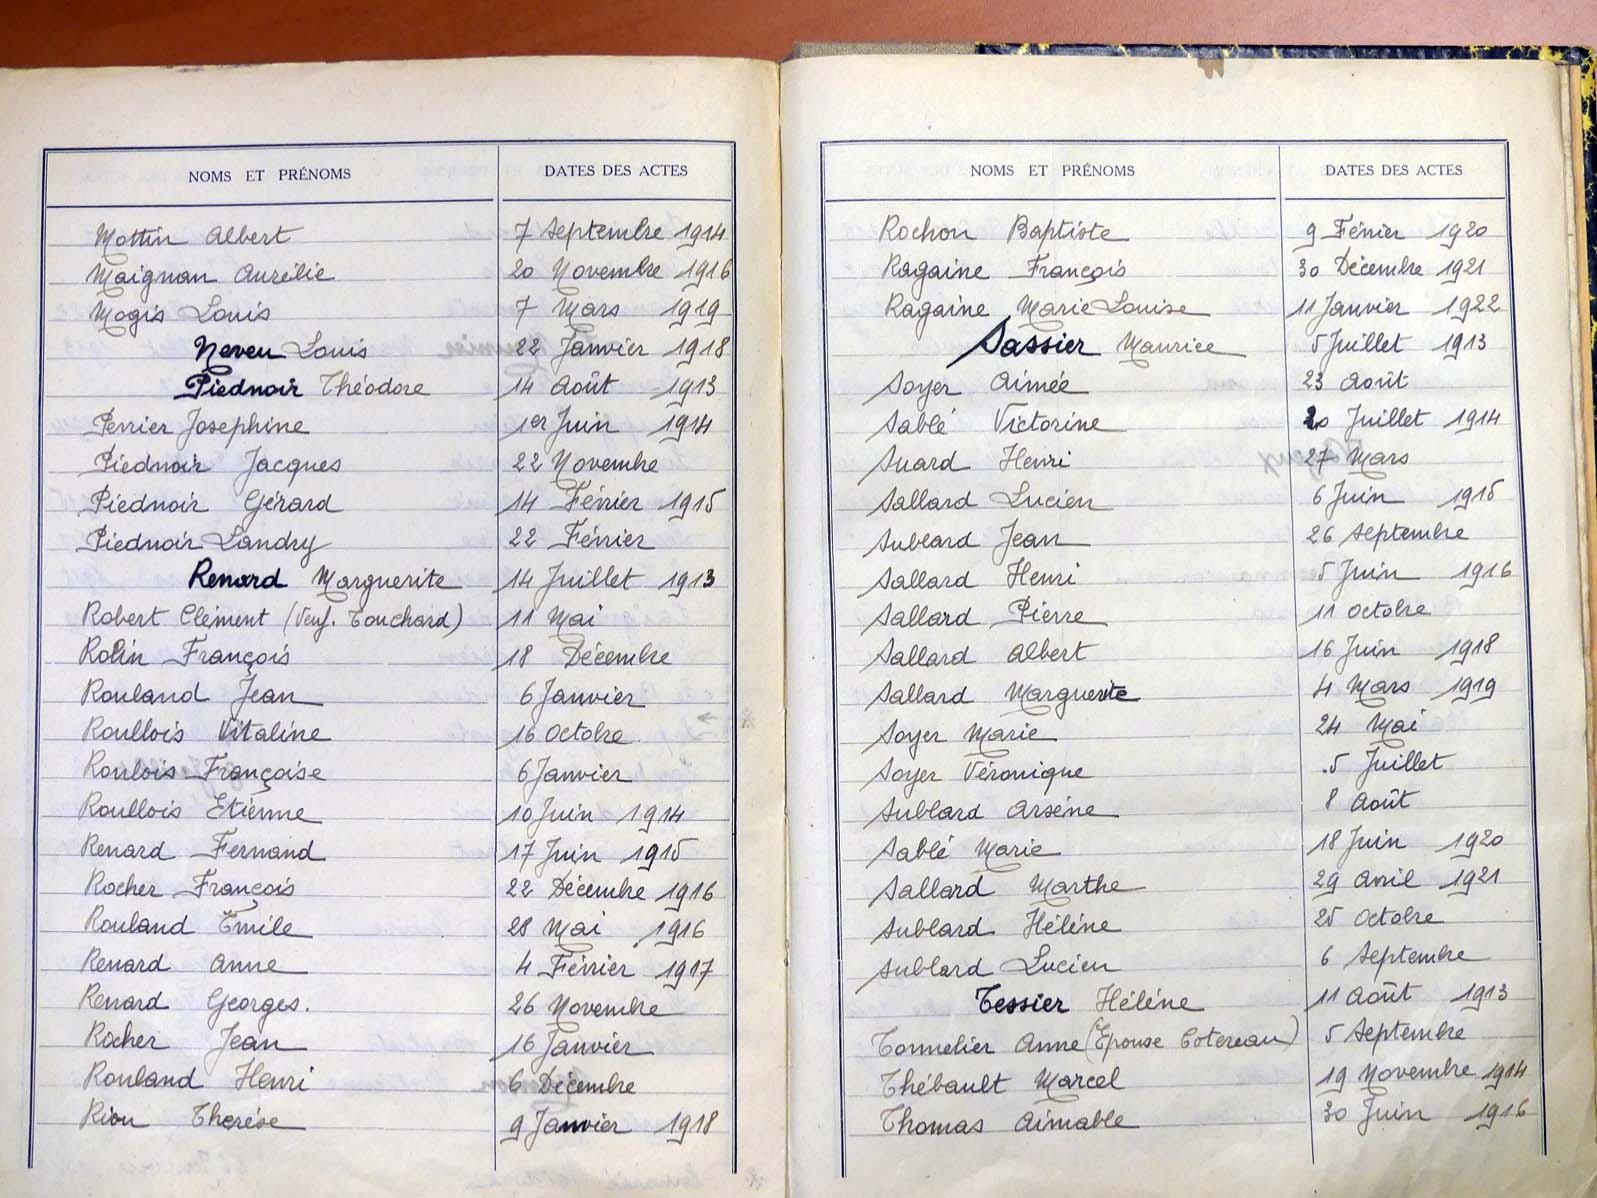 NOMS ET PRÉNOMS DATES DES ACTES
Mottin Albert 7 Septembre 1914
Maignan Aurélie 20 Novembre 1916
Mogis Louis 7 Mars 1919
Neveu Louis 22 Janvier 1918
Piednoir Théodore 14 Août 1913
Perrier Josephine 1er Juin 1914
Piednoir Jacques 22 Novembre
Piednoir Gérard 14 Février 1915
Piednoir Landry 22 Février
Renard Marguerite 14 Juillet 1913
Robert Clément (Veuf. Touchard) 11 Mai
Robin François 18 Décembre
Rouland Jean 6 Janvier
Roullois Vitaline 16 Octobre
Roulois Françoise 6 Janvier
Roullois Etienne 10 Juin 1914
Renard Fernand 17 Juin 1915
Rocher François 22 Décembre 1916
Rouland Emile 28 Mai 1916
Renard Anne 4 Février 1917
Renard Georges. 26 Novembre
Rocher Jean 16 Janvier
Rouland Henri 6 Décembre
Riou Therése 9 Janvier 1918
NOMS ET PRÉNOMS DATES DES ACTES
Rochon Baptiste 9 Février 1920
Ragaine François 30 Décembre 1921
Ragaine Marie Louise 11 Janvier 1922
Sassier Maurice 5 Juillet 1913
Soyer Aimée 23 Août
Sablé Victorine 20 Juillet 1914
Suard Henri 27 Mars
Sallard Lucien 6 Juin 1915
Subeard Jean 26 Septembre
Sallard Henri 5 Juin 1916
Sallard Pierre 11 Octobre
Sallard Albert 16 Juin 1918
Sallard Marguerite 4 Mars 1919
Soyer Marie 24 Mai
Soyer Véronique 5 Juillet
Sublard Arséne 8 Août
Sablé Marie 18 Juin 1920
Sallard Marthe 29 Avril 1921
Sublard Héléne 25 Octobre
Sublard Lucien 6 Septembre
Tessier Héléne 11 Août 1913
Tonnelier Anne (Epouse Cotereau) 5 Septembre
Thébault Marcel 19 Novembre 1914
Thomas Aimable 30 Juin 1916